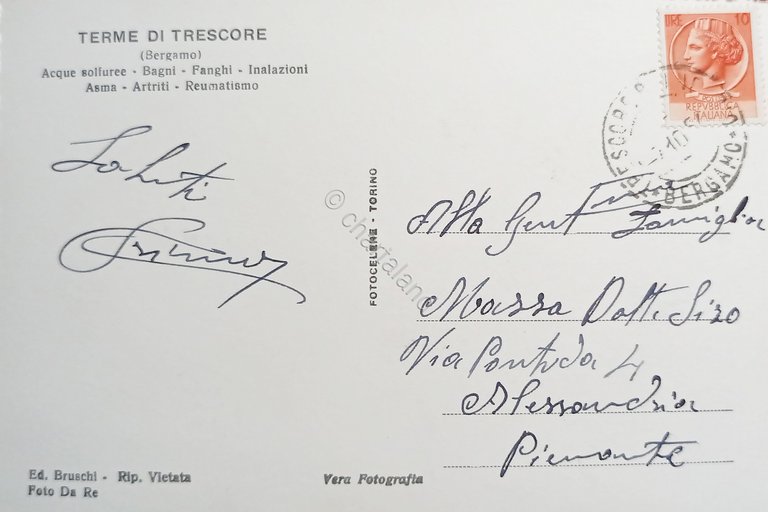 TERME DI TRESCORE
(Bergamo)
Acque solfuree - Bagni - Fanghi - Inalazioni
Asma - Artriti - Reumatismo
LIRE 10
REPVBBLICA
ITALIANA
BERGAMO
Saluti
FOTOCELERE - TORINO
© chartaland
Alla Gent Famiglia
Massa Dott. Siro
Via Pontida 4
Alessandria
Piemonte
Ed. Bruschi - Rip. Vietata
Foto Da Re
Vera Fotografia